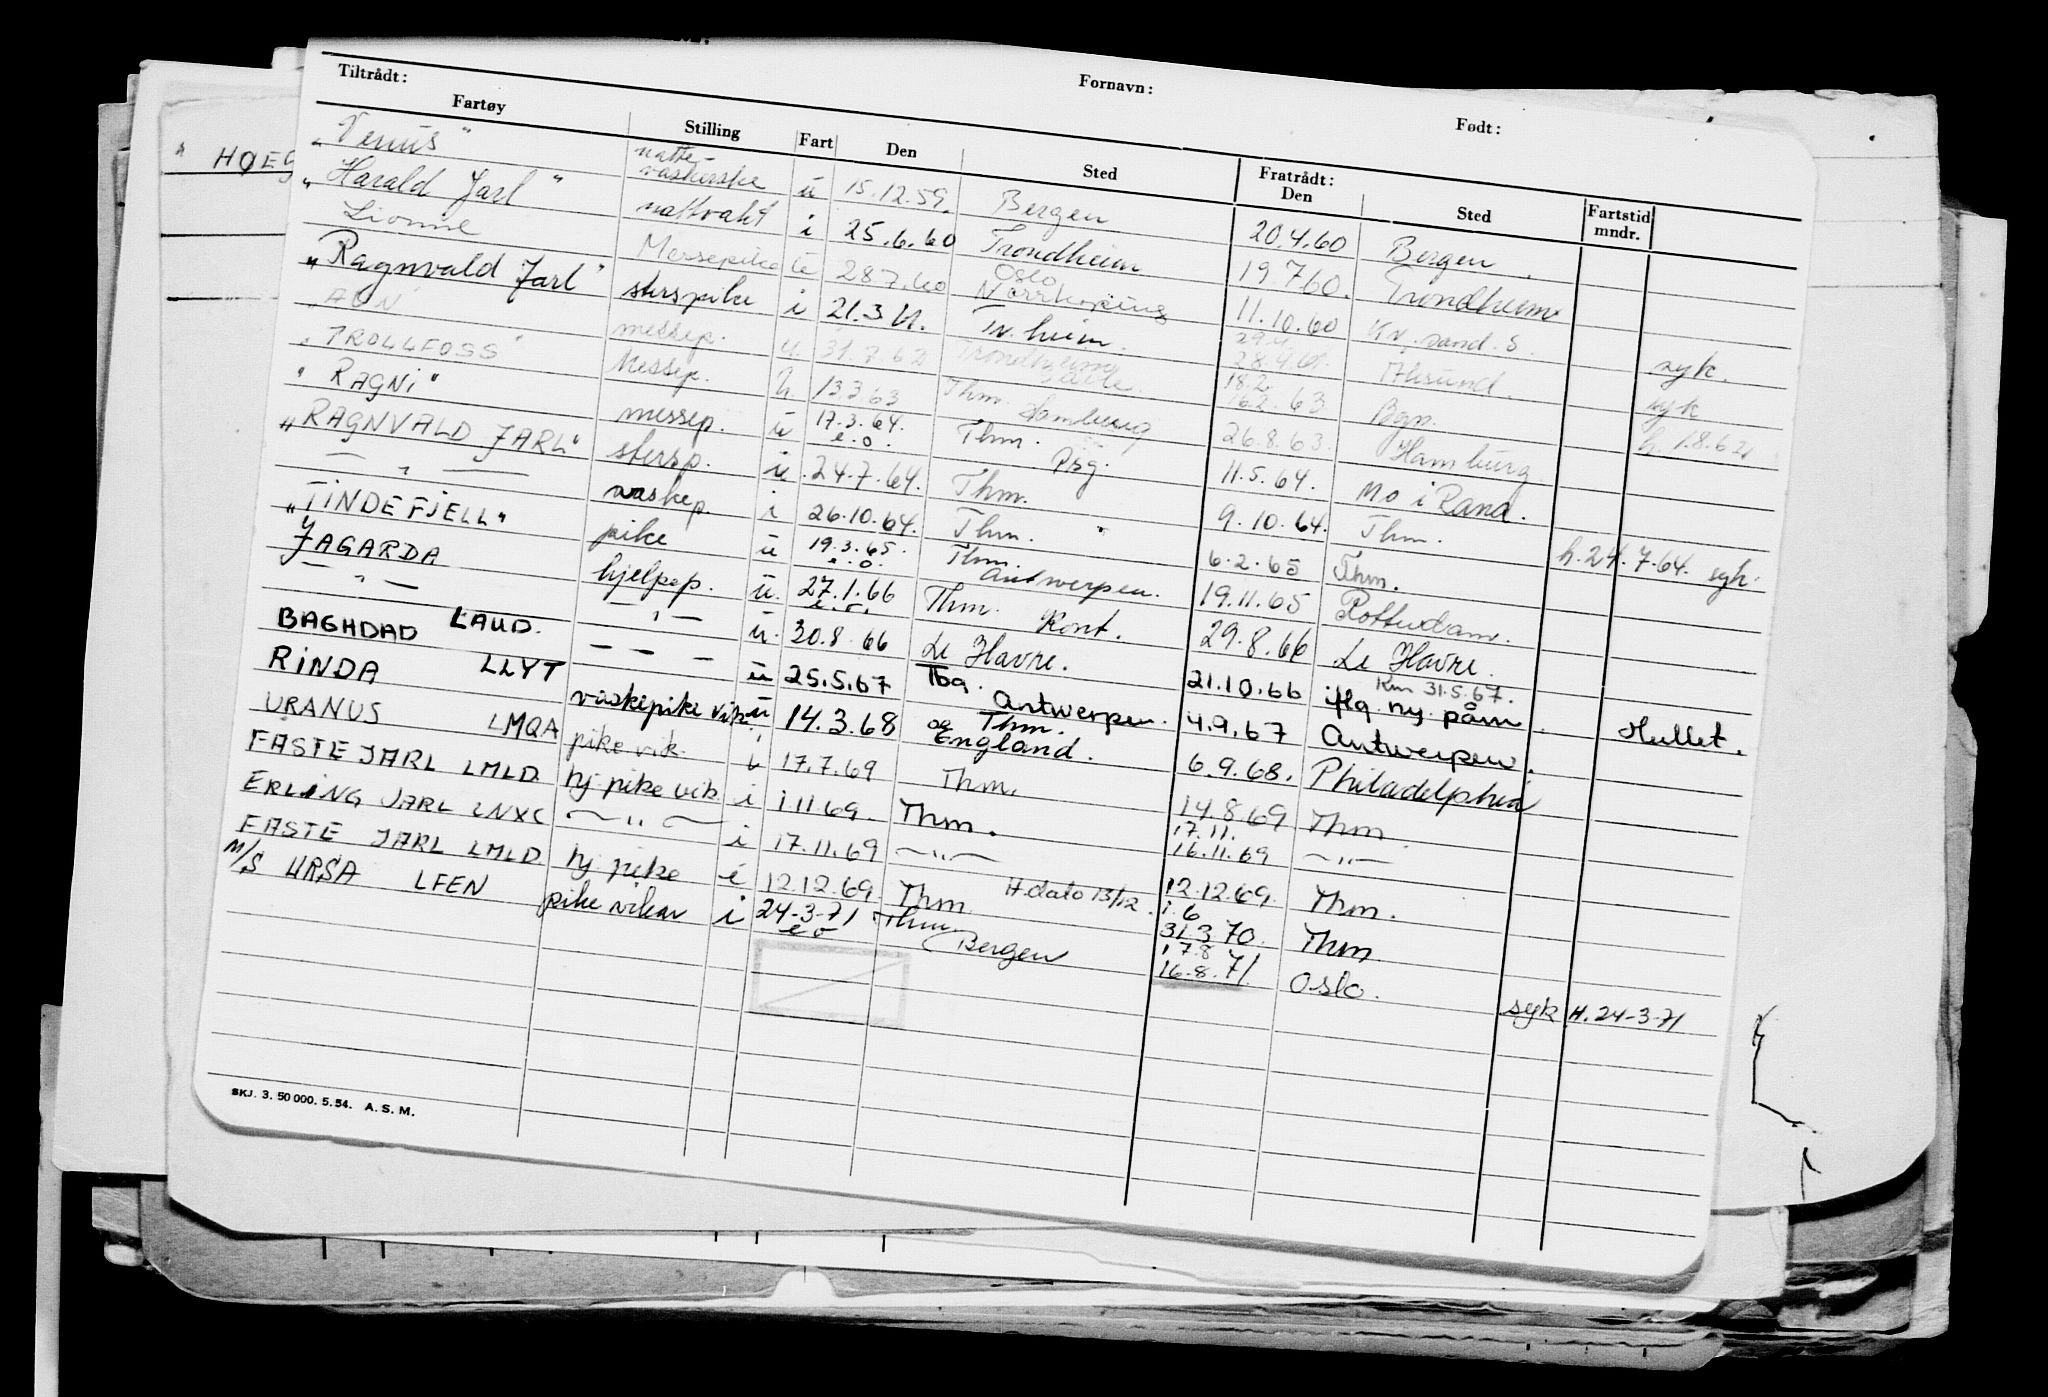 " HØEG
Tiltrådt: Fornavn: Født:
Fartøy Stilling Fart Den Sted Fratrådt: Den Sted Fartstid mndr.
"Venus" natte-vaskerske u 15.12.59. Bergen 20.4.60 Bergen.
"Harald Jarl" nattvakt i 25.6.60 Trondheim 19.7.60. Trondheim
Lionne Messepike u 28.7.60 Oslo Norrkøping 11.10.60 Kr.sand.S. syk.
"Ragnvald Jarl" sterspike i 21.3.61. Tr.heim. 29.4 28.4.61. Ålesund. syk
messep. u. 31.7.62 Trondheim 18.2. 16.2.63 Bgn. h. 1.8.62
"TROLLFOSS" Messep. u. 13.3.63 Thm. Hamburg 26.8.63. Hamburg
"RAGNI" messep. u 17.3.64. e.o. Thm. Psg. 11.5.64. Mo i Rana.
"RAGNVALD JARL" stersp. i. 24.7.64. Thm. 9.10.64. Thm. h. 24.7.64. syk.
— " — vaskep. i 26.10.64. Thm. 6.2.65 Thm.
"TINDEFJELL" pike u 19.3.65. e.o. Thm. Antwerpen. 19.11.65 Rotterdam.
JAGARDA hjelpep. u. 27.1.66 e.o. Thm. Kont. 29.8.66 Le Havre.
— " — — " — u. 30.8.66 Le Havre. 21.10.66 iflg. ny. påm. Km 31.5.67. Hullet.
BAGHDAD LAUD. — — — u 25.5.67 Tbg. Antwerpen. 4.9.67 Antwerpen.
RINDA LLYT vaskepike vik. u 14.3.68 Thm. og England. 6.9.68. Philadelphia
URANUS LMQA pike vik. i 17.7.69 Thm. 14.8.69 Thm.
FASTE JARL LMLD hj. pike vik. i 1.11.69. Thm. 17.11. 16.11.69 — " —
ERLING JARL LNXC — " — i 17.11.69 — " — 12.12.69. Thm.
FASTE JARL LMLD hj. pike i 12.12.69 Thm H.dato 13/12. 1.6 31.3.70. Thm
M/S URSA LFEN pike vikar i 24-3-71 e o Thm Bergen 17.8 16.8.71 Oslo. syk H. 24-3-71
SKJ. 3. 50 000. 5.54. A. S. M.